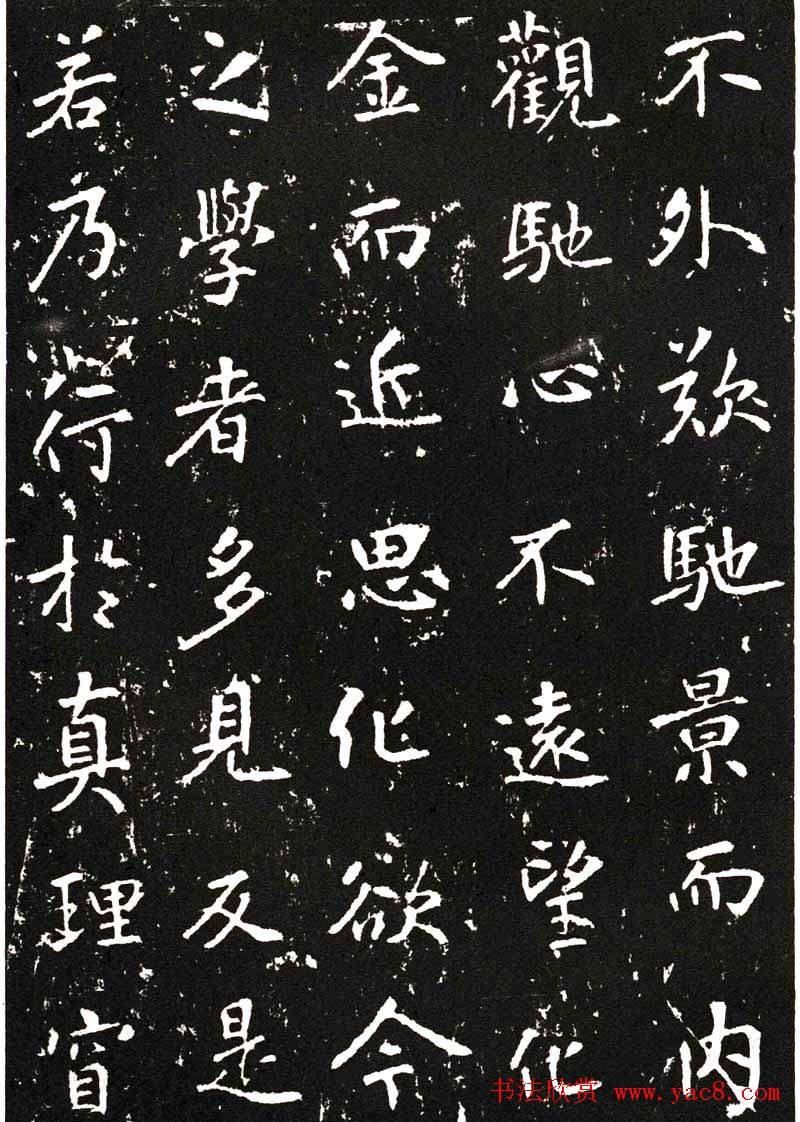 不外欻馳景而内
觀馳心不遠望化
金而近思化欲今
之學者多見反是
若乃荷於真理窅
书法欣赏 www.yac8.com